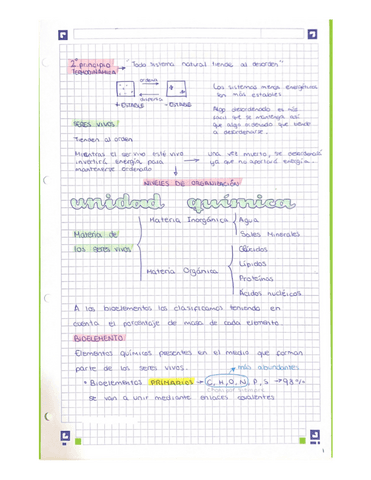 2º principio "Todo sistema natural tiende al desorden"
TERMODINÁMICA
ordena
dispersa
+ ESTABLES - ESTABLES
Los sistemas menos energéticos
son más estables
Algo desordenado es más
fácil que se mantenga así
que algo ordenado que tiende
a desordenarse.
SERES VIVOS
Tienden al orden
Mientras el ser vivo esté vivo → una vez muerto, se desordenará
invertirá energía para ya que no aportará energía.
mantenerse ordenado
NIVELES DE ORGANIZACIÓN
unidad química
Materia de
los seres vivos
Materia Inorgánica
Agua
Sales Minerales
Materia Orgánica
Glúcidos
Lípidos
Proteínas
Ácidos nucléicos
A los bioelementos los clasificamos teniendo en
cuenta el porcentaje de masa de cada elemento.
BIOELEMENTO
Elementos químicos presentes en el medio que forman
parte de los seres vivos.
más abundantes
• Bioelementos PRIMARIOS → C, H, O, N, P, S → 98%
se van a unir mediante enlaces covalentes
1